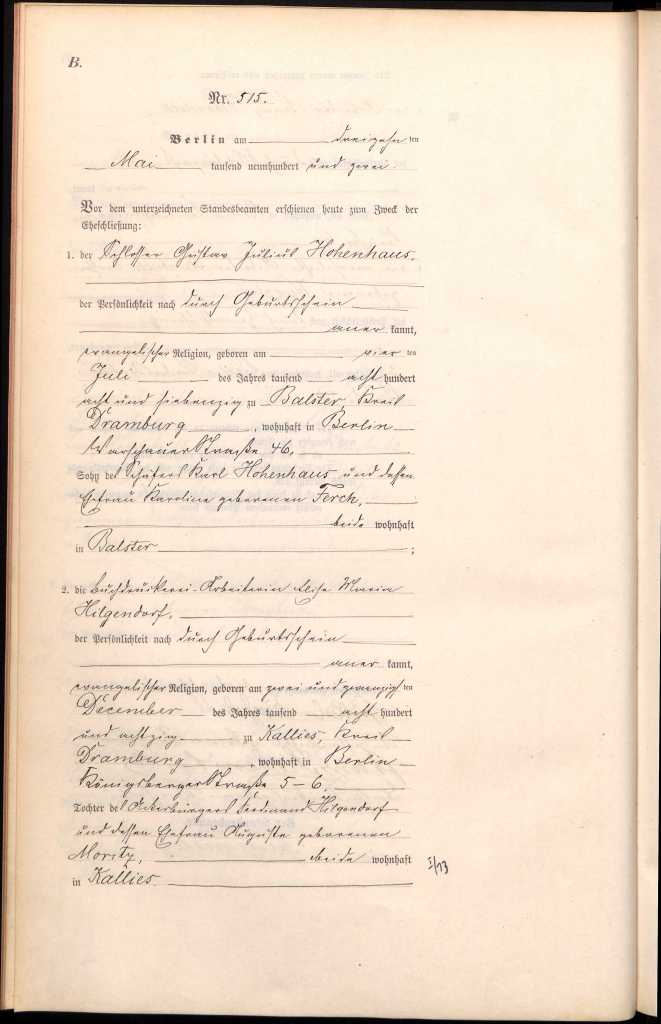 B.
Nr. 515.
Berlin am dreizehn ten
Mai tausend neunhundert und zwei.
Vor dem unterzeichneten Standesbeamten erschienen heute zum Zweck der
Eheschließung:
1. der Schlosser Gustav Julius Hohenhaus.
der Persönlichkeit nach durch Geburtsschein
aner kannt,
evangelischer Religion, geboren am vier ten
Juli des Jahres tausend acht hundert
acht und siebenzig zu Balster Kreis
Dramburg, wohnhaft in Berlin
Warschauer Straße 46.
Sohn des Schäfers Karl Hohenhaus und dessen
Ehefrau Karoline geborenen Ferch,
beide wohnhaft
in Balster ;
2. die Buchdruckerei-Arbeiterin Elise Maria
Hilgendorf,
der Persönlichkeit nach durch Geburtsschein
aner kannt,
evangelischer Religion, geboren am zwei und zwanzigs ten
December des Jahres tausend acht hundert
und achtzig zu Kallies, Kreis
Dramburg, wohnhaft in Berlin
Königsberger Straße 5-6.
Tochter des Ackerbürgers Ferdinand Hilgendorf
und dessen Ehefrau Auguste geborenen
Moritz, beide wohnhaft
in Kallies.